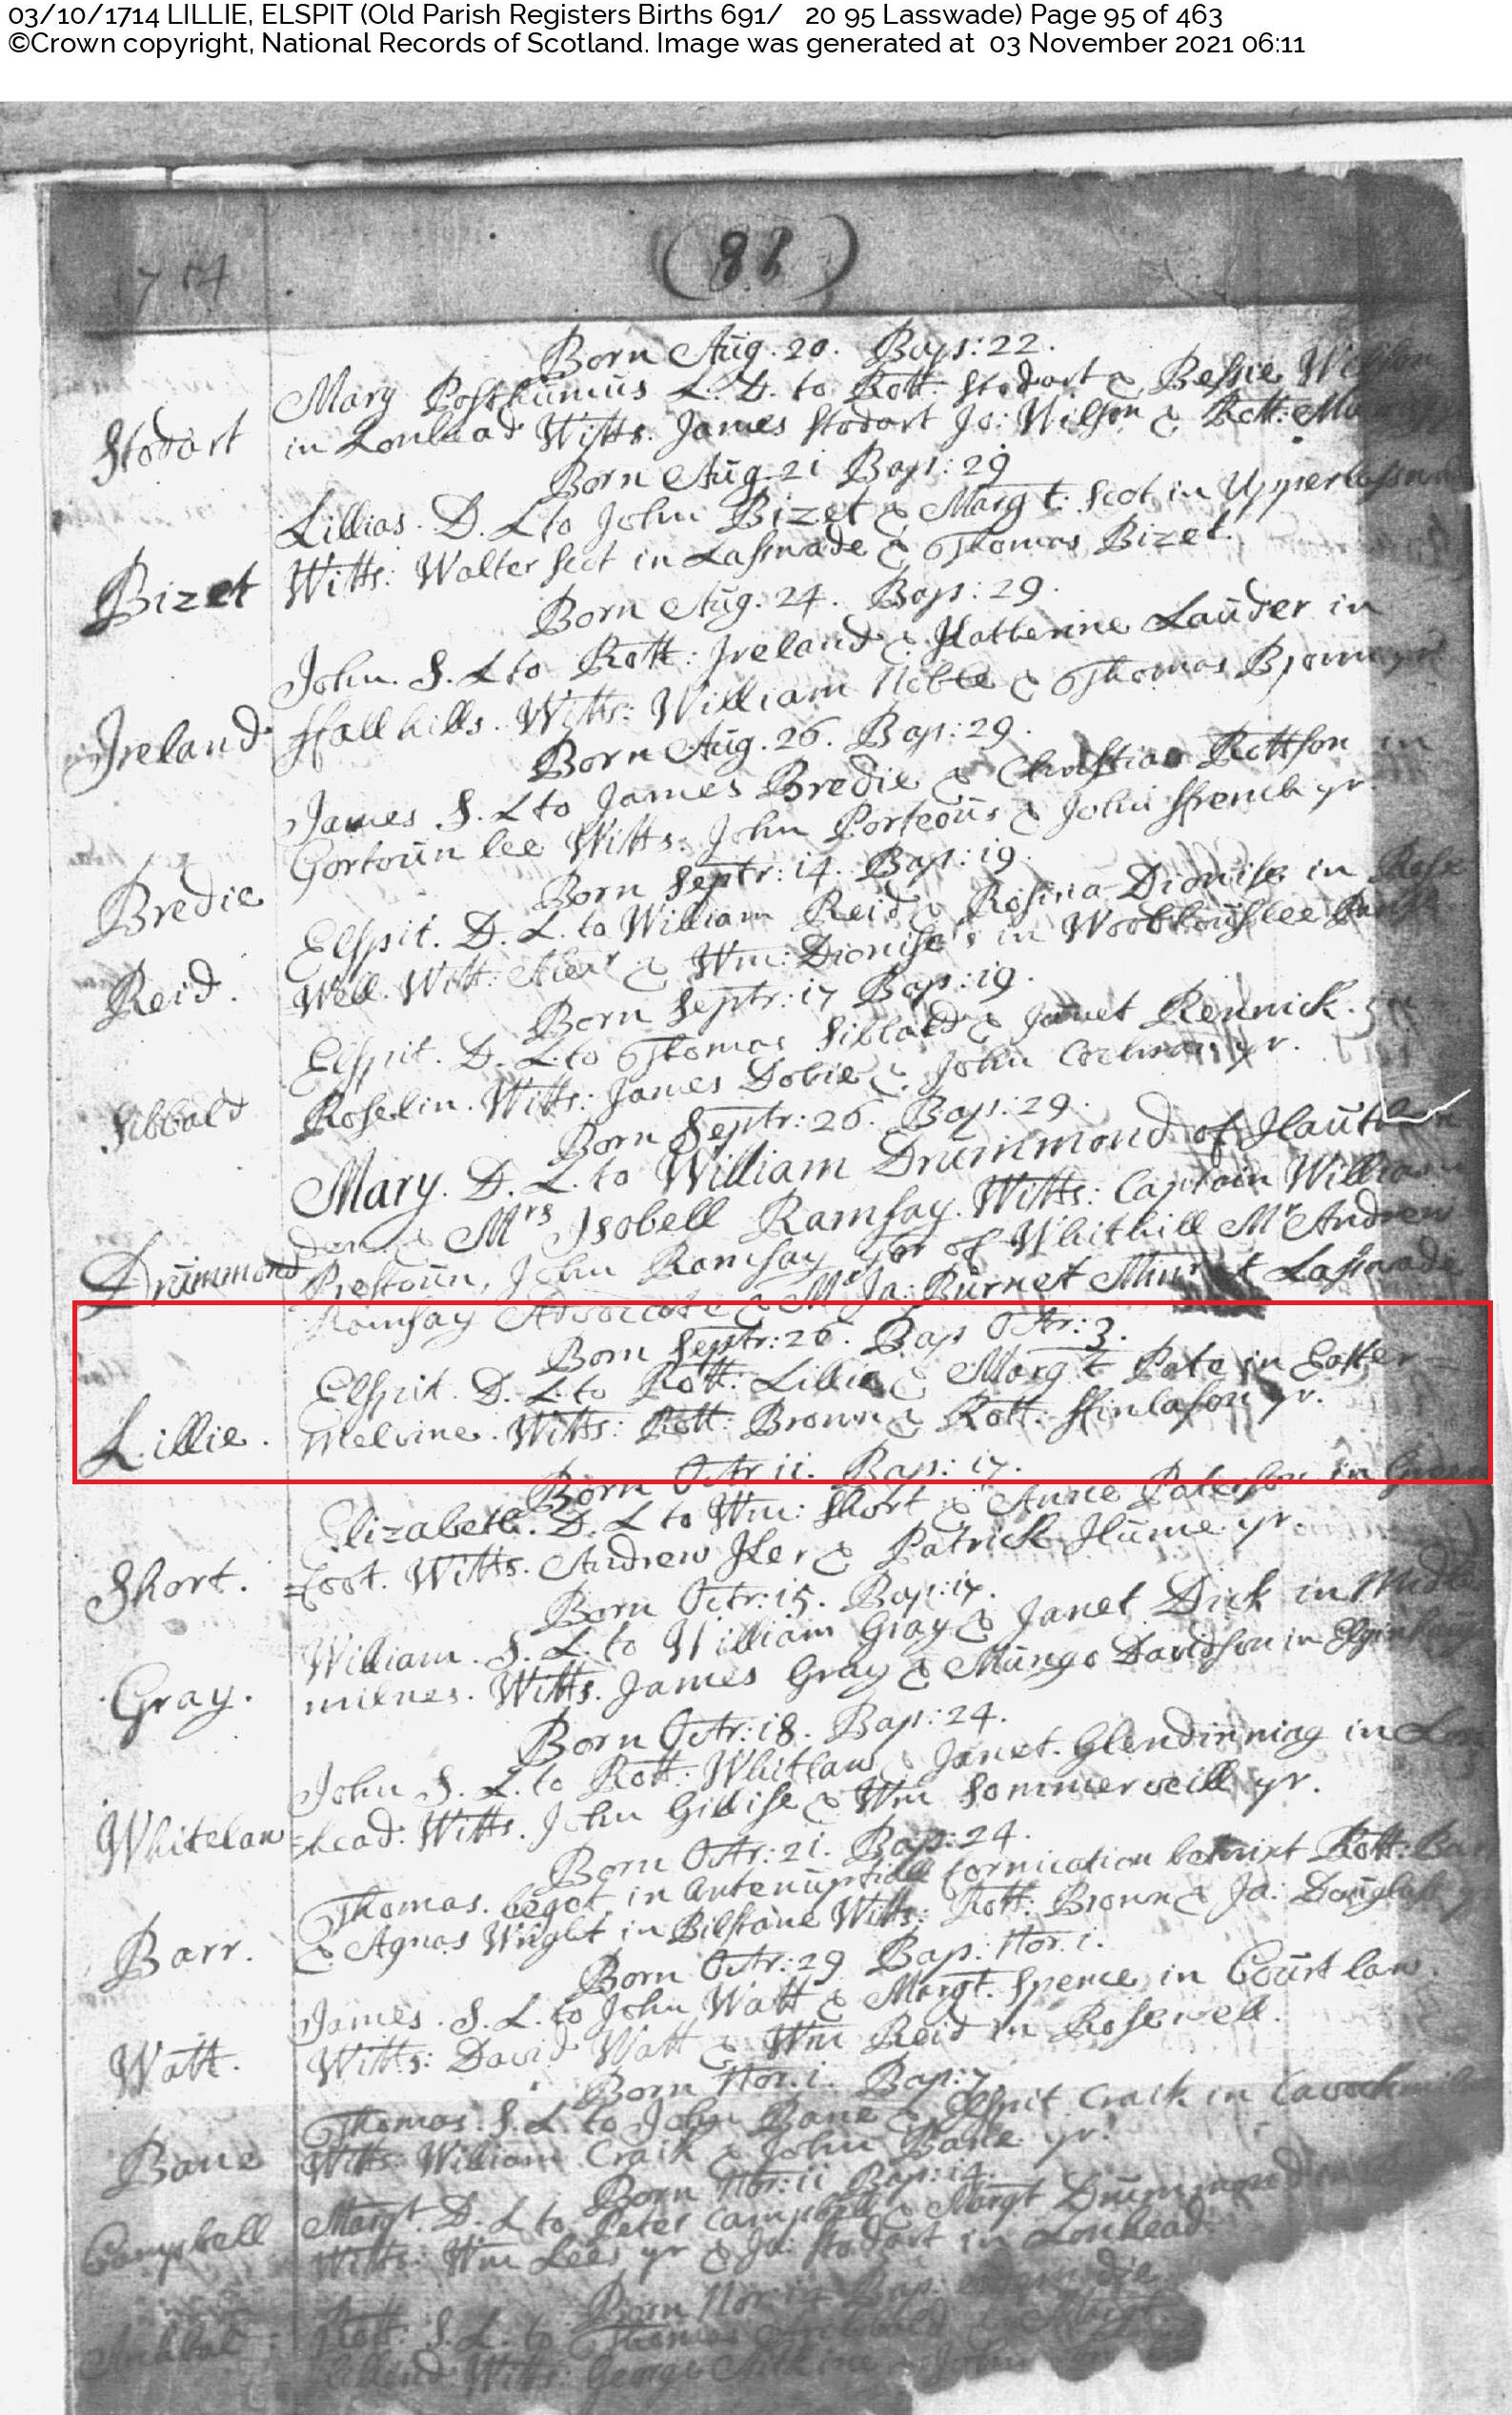 03/10/1714 LILLIE, ELSPIT (Old Parish Registers Births 691/ 20 95 Lasswade) Page 95 of 463
©Crown copyright, National Records of Scotland. Image was generated at 03 November 2021 06:11
1714
(88)
Born Aug. 20. Bap: 22.
Mary Posthumus L. D. to Rott. Stodart & Bessie Wilson
Stodart
in Lonhead Witts. James Stodart Jo: Wilson & Rott:
Born Aug. 21 Bap: 29
Lillias. D. L to John Bizet & Margt. Scot in Upperlasswade
Bizet
Witts: Walter Scot in Lasswade & Thomas Bizet.
Born Aug. 24. Bap: 29.
John. S. L to Rott: Ireland & Katherine Lauder in
Ireland
ffallhills. Witts: William Noble & Thomas
Born Aug. 26. Bap: 29.
James S. L to James Bredie & Christian Rottson in
Bredie
Gortounlee Witts: John Porteous & John ffrench yr.
Born Septr: 14. Bap: 19.
Elspit. D. L. to William Reid & Rosina Dionise in Rose
Reid.
Well. Witt: Alexr & Wm: Dionise's in Woodhouslee
Born Septr: 17 Bap: 19.
Elspit. D. L. to Thomas Sibbald & Janet Rennick in
Sibbald
Roselin. Witts: James Dobie & John Cochran yr.
Born Septr: 26. Bap: 29.
Mary. D. L. to William Drummond of Hauthorn
Drummond
den. & Mrs Isobell Ramsay. Witts: Captain William
Prestoun, John Ramsay of Whithill Mr Andrew
Ramsay Advocate & Mr Ja: Burnet Minr at Lasswade
Born Septr: 26. Bap Octr: 3.
Elspit. D. L. to Rott: Lillie & Margt Pate in Easter
Lillie.
Melvine. Witts: Rott: Brown & Rott: ffinlason yr.
Born Octr 11. Bap: 17.
Elizabeth. D. L to Wm: Short & Anne Paterson in
Short.
=foot. Witts. Andrew Ker & Patrick Hume yr.
Born Octr: 15. Bap: 17.
William. S. L. to William Gray & Janet Dick in
Gray.
milnes. Witts. James Gray & Mungo Davidson in Elginhaugh
Born Octr: 18. Bap: 24.
John S. L. to Rott: Whitlaw & Janet Glendinning in Lon
Whitelaw
=head: Witts. John Gillise & Wm Sommerveill yr.
Born Octr: 21. Bap: 24.
Thomas. begot in antenuptiall fornication betwixt Rott: Barr
Barr.
& Agnas Wright in Bilstane Witts: Rott: Brown & Ja: Douglass
Born Octr: 29 Bap: Nor. 1.
James. S. L. to John Watt & Margt. Spence in Courtlaw.
Watt.
Witts: David Watt & Wm Reid in Rosewell.
Born Nor. 1. Bap: 7.
Thomas. S. L to John Bane & Elspit Craik in
Bane
Witts William Craik & John Bane yr.
Born Nor: 11 Bap: 14.
Margt. D. L to Peter Campbell & Margt Drummond in
Campbell
Witts: Wm Lees yr & Ja: Stodart in Lonhead.
Born Nor: Bap:
Rott. S. L. to Thomas
Witts: George